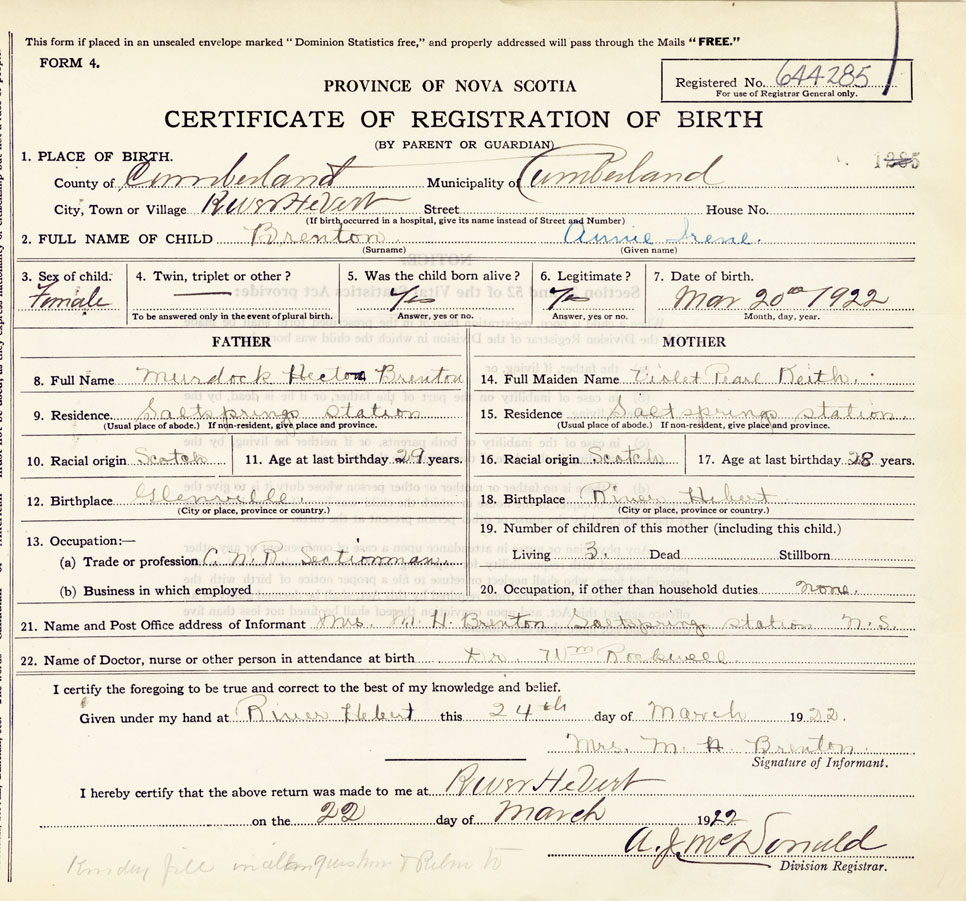 This form if placed in an unsealed envelope marked "Dominion Statistics free," and properly addressed will pass through the Mails "FREE."
FORM 4.
Registered No. 644285
For use of Registrar General only.
PROVINCE OF NOVA SCOTIA
CERTIFICATE OF REGISTRATION OF BIRTH
(BY PARENT OR GUARDIAN)
1. PLACE OF BIRTH.
County of Cumberland Municipality of Cumberland
City, Town or Village River Hebert Street House No.
(If birth occurred in a hospital, give its name instead of Street and Number)
2. FULL NAME OF CHILD Brenton Annie Irene.
(Surname) (Given name)
3. Sex of child. 4. Twin, triplet or other? 5. Was the child born alive? 6. Legitimate? 7. Date of birth.
Female — Yes Yes Mar 20th 1922
To be answered only in the event of plural birth. Answer, yes or no. Answer, yes or no. Month, day, year.
FATHER MOTHER
8. Full Name Murdock Hector Brenton 14. Full Maiden Name Violet Pearl Keith.
9. Residence. Saltsprings Station 15. Residence Saltsprings Station
(Usual place of abode.) If non-resident, give place and province. (Usual place of abode.) If non-resident, give place and province.
10. Racial origin Scotch 11. Age at last birthday 29 years. 16. Racial origin Scotch 17. Age at last birthday 28 years.
12. Birthplace Glenville. 18. Birthplace River Hebert
(City or place, province or country.) (City or place, province or country.)
13. Occupation:— 19. Number of children of this mother (including this child.)
(a) Trade or profession C.N.R. Sectionman. Living 3. Dead Stillborn
(b) Business in which employed 20. Occupation, if other than household duties none.
21. Name and Post Office address of Informant Mrs. M. H. Brenton Saltsprings Station N.S.
22. Name of Doctor, nurse or other person in attendance at birth Dr. Wm Rockwell
I certify the foregoing to be true and correct to the best of my knowledge and belief.
Given under my hand at River Hebert this 24th day of March 1922.
Mrs. M H Brenton.
Signature of Informant.
I hereby certify that the above return was made to me at River Hebert
on the 22 day of March 1922
A. J. McDonald
Division Registrar.
Kindly fill in all questions & Return to